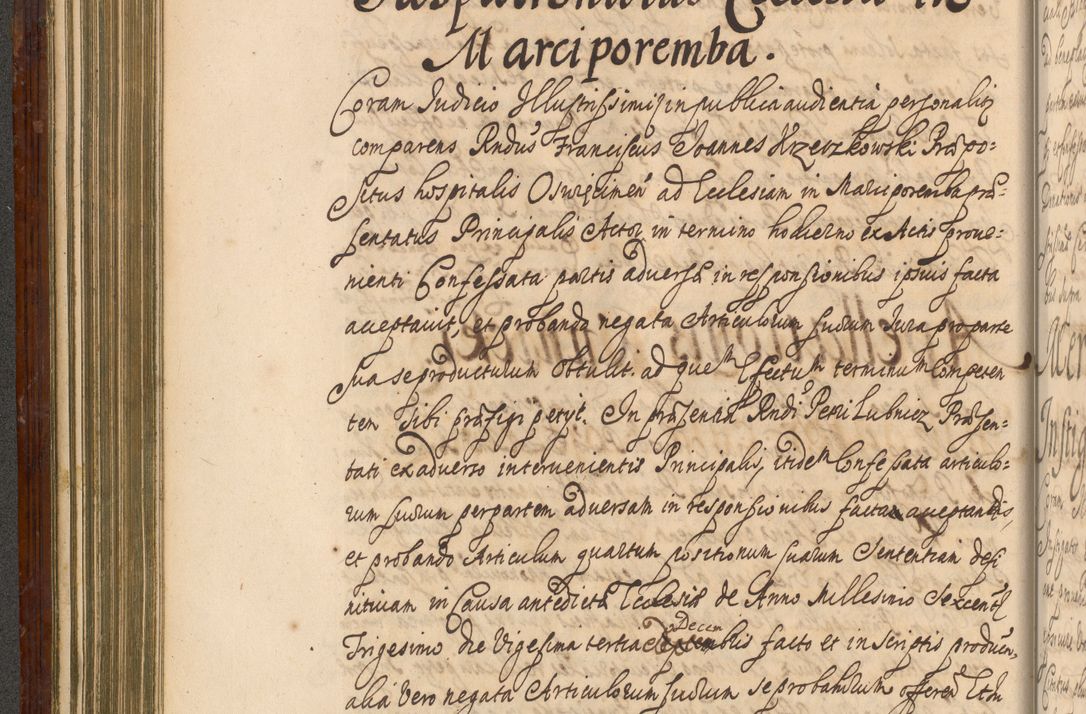 Juspatronatus Ecclesiæ in
Marciporemba.
Coram Judicio Illustrissimi in publica audientia personaliq
comparens Rndus Franciscus Joannes Krzeszkowski Præpo=
situs hospitalis Oswiecimen ad Ecclesiam in Marciporemba præ=
sentatus Principalis Actor in termino hodierno ex Actis prove=
nienti Confessata partis adversæ in responsionibus ipsius facta
acceptavit, et probando negata Articulorum suorum Jura pro parte
sua se producturum obtulit. ad quem Effectum terminum Competen
tem sibi præfigi petyt. In præsentia Rndi Petri Lubnicz Præsen=
tati ex adverso intervenientis Principalis, itidem Confessata articulo=
rum suorum per partem adversam in responsionibus facta acceptandis,
et probando Articulum quartum positionum suarum Sententiam defi
nitivam in Causa antedictæ Ecclesiæ de Anno Millesimo Sexcent
Trigesimo die Vigesima tertia Decembris facto et in scriptis producen,
alia vero negata Articulorum suorum se probandum offeren